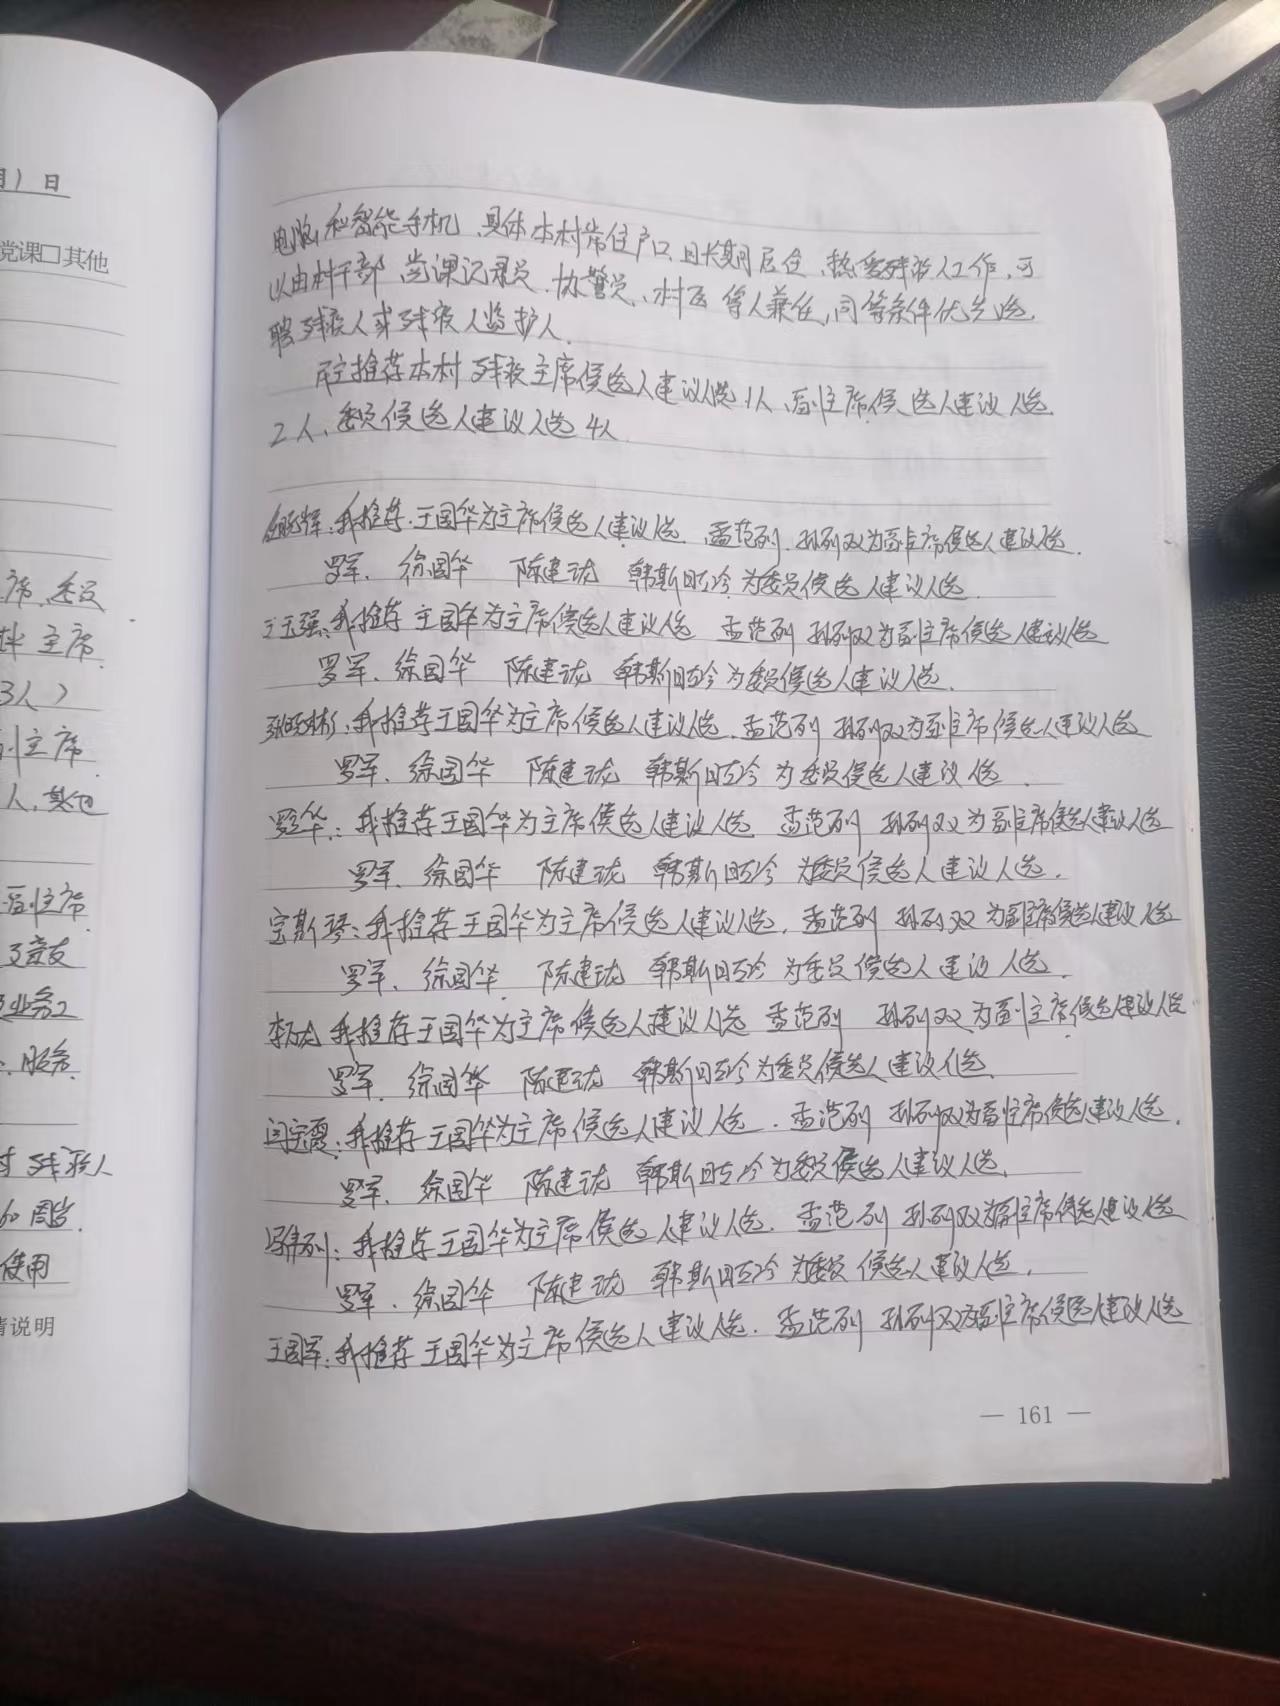 月1日
党课□其他
席、委员
主席
3人）
副主席
人，其他
副主席
业务
服务
残疾人
60周岁.
使用
情说明
电脑和智能手机、具体本村常住户口、且长期居住、热爱残疾人工作、可
以由村干部、党课记录员、协警员、村医等人兼任，同等条件优先选
聘残疾人或残疾人监护人.
民主推荐本村残疾主席候选人建议人选1人、副主席候选人建议人选
2人、委员候选人建议人选4人
我推荐.王国华为主席候选人建议人选. 孟范列. 孙列双为副主席候选人建议人选.
罗军. 徐国华 陈建珑 韩斯日古冷为委员候选人建议人选.
王玉强:我推荐王国华为主席候选人建议人选 孟范列 孙列双为副主席候选人建议人选
罗军.徐国华 陈建珑 韩斯日古冷为委员候选人建议人选.
张晓彬:我推荐王国华为主席候选人建议人选.孟范列 孙列双为副主席候选人建议人选
罗军.徐国华 陈建珑 韩斯日古冷为委员候选人建议人选.
华:我推荐王国华为主席候选人建议人选.孟范列 孙列双为副主席候选人建议人选
罗军.徐国华 陈建珑 韩斯日古冷为委员候选人建议人选.
宝斯琴:我推荐王国华为主席候选人建议人选.孟范列 孙列双为副主席候选人建议人选
罗军.徐国华.陈建珑 韩斯日古冷为委员候选人建议人选.
李 我推荐王国华为主席候选人建议人选 孟范列 孙列双为副主席候选人建议人选
罗军.徐国华 陈建珑 韩斯日古冷为委员候选人建议人选.
闫宝霞:我推荐王国华为主席候选人建议人选.孟范列 孙列双为副主席候选人建议人选.
罗军.徐国华 陈建珑 韩斯日古冷为委员候选人建议人选.
列:我推荐王国华为主席候选人建议人选.孟范列 孙列双为副主席候选人建议人选
罗军.徐国华 陈建珑 韩斯日古冷为委员候选人建议人选.
王国军:我推荐王国华为主席候选人建议人选.孟范列 孙列双为副主席候选人建议人选
— 161 —